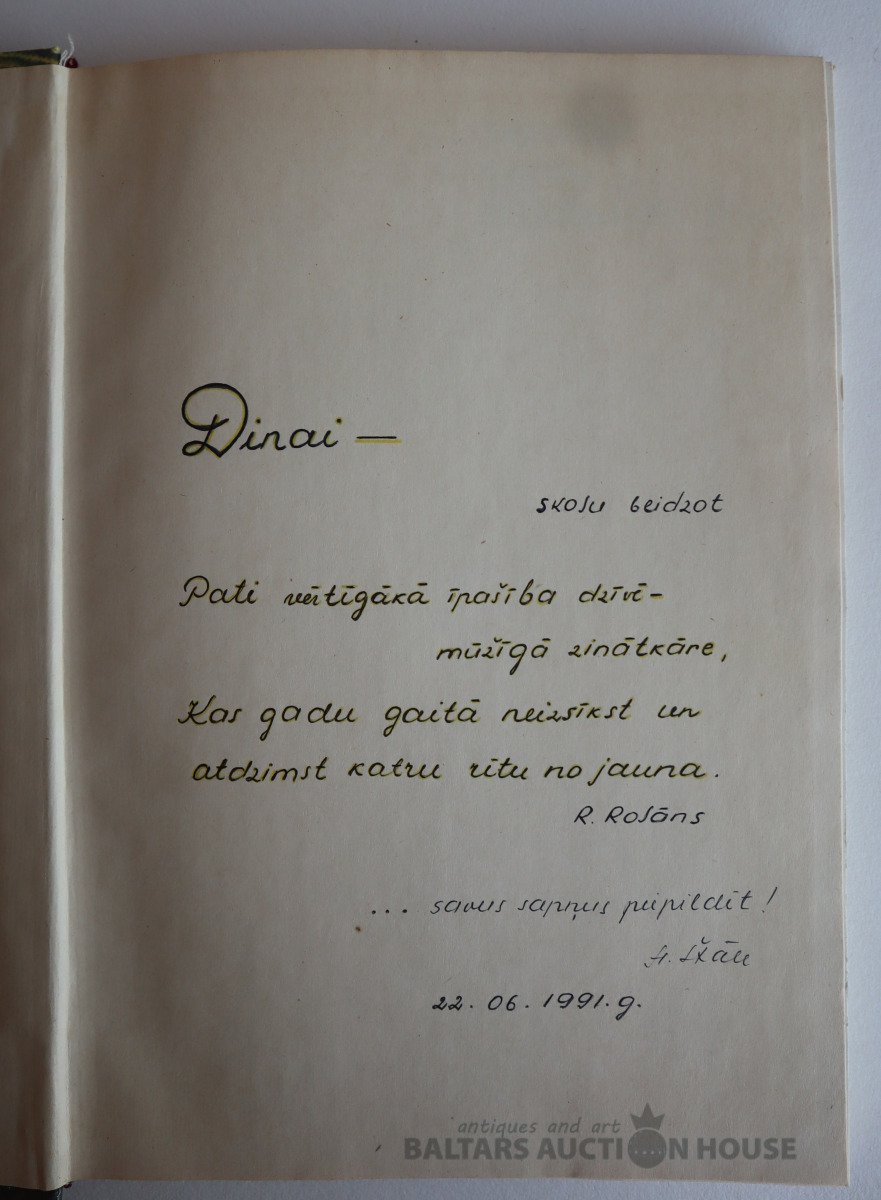 Dinai —
skolu beidzot
Pati vērtīgākā īpašība dzīvē –
mūžīgā zinātkāre,
Kas gadu gaitā neizsīkst un
atdzimst katru rītu no jauna.
R. Rolāns
... savus sapņus piepildīt!
22. 06. 1991. g.
antiques and art
BALTARS AUCTION HOUSE